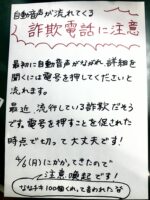 自動音声が流れてくる
詐欺電話に注意
最初に自動音声がながれ、詳細を
聞くには電号を押してくださいと
流れます。
最近 流行している詐欺だそう
です。電号を押すことを促された
時点で切って大丈夫です!
6/6(月)にかかってきたので
注意喚起です!
ななチキ100個くれって言われた